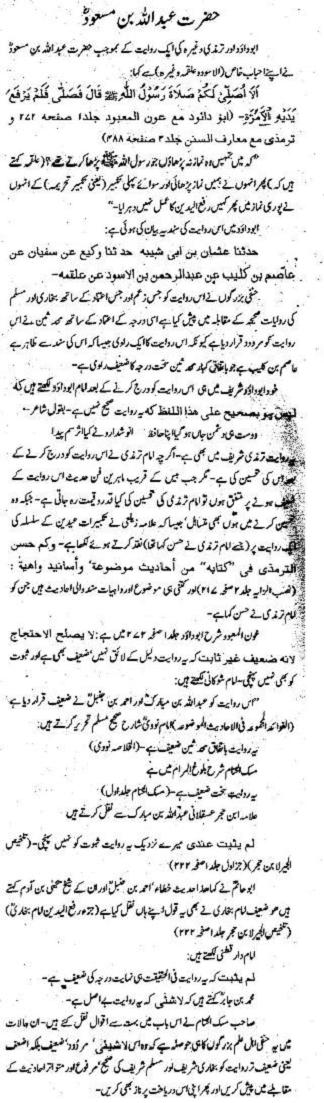 حضرت عبد اللہ بن مسعودؓ
ابوداؤد اور ترمذی وغیرہ کی ایک روایت کے بموجب حضرت عبد اللہ بن مسعودؓ
نے اپنے احباب خاص (الاسود و علقمہ وغیرہ) سے کہا:
اَلاَ اُصَلِّيْ لَكُمْ صَلاَةَ رَسُوْلُ اللّٰہِ ﷺ قَالَ فَصَلّٰى فَلَمْ يَرْفَعْ
يَدَيْهِ اِلاَّ مَرَّةً- (ابو دائود مع عون المعبود جلد۱ صفحہ ۲۷۲ و
ترمذی مع معارف السنن جلد۲ صفحہ ۴۸۸)
"کہ میں تمہیں وہ نماز نہ پڑھاؤں جو رسول اللہ ﷺ پڑھا کرتے تھے؟ (علقمہ کہتے
ہیں کہ) پھر انہوں نے ہمیں نماز پڑھائی اور سوائے پہلی تکبیر (یعنی تکبیر تحریمہ) کے انہوں
نے پوری نماز میں پھر کہیں رفع الیدین کا عمل نہیں دہرایا-"
ابوداؤد میں اس روایت کی سند یہ بیان کی ہوئی ہے:
حدثنا عثمان بن ابی شیبہ حدثنا وکیع عن سفیان عن
عاصم بن کلیب عن عبدالرحمن بن الاسود عن علقمہ-
حنفی بزرگوں نے اس روایت کو جس زعم اور جس اعتماد کے ساتھ بخاری اور مسلم
کی روایات صحیحہ کے مقابلہ میں پیش کیا ہے اسی درجہ کے اعتماد کے ساتھ محدثین نے اس
روایت کو مردود قرار دیا ہے کیونکہ اس روایت کا ایک راوی جیسا کہ اس کی سند سے ظاہر ہے
عاصم بن کلیب ہے جو باتفاق کبار محدثین سخت درجہ کا ضعیف راوی ہے-
خود ابوداؤد شریف میں ہی اس روایت کو درج کرنے کے بعد امام ابوداؤد لکھتے ہیں کہ
لیس ہو بصحیح علی ھذا اللفظ کہ یہ روایت صحیح نہیں ہے- بقول شاعر-
دوست ہی دشمن جاں ہو گیا اپنا حافظ نوشدارو نے کیا اثر سم پیدا
یہ روایت ترمذی شریف میں بھی ہے- اگرچہ امام ترمذی نے اس روایت کو درج کرنے کے
بعد اس کی تحسین کی ہے- مگر جب ہیں کے قریب ماہرین فن حدیث اس روایت کے
ضعیف ہونے پر متفق ہوں تو امام ترمذی کی تحسین کی کیا قدر و قیمت رہ جاتی ہے- جبکہ وہ
تحسین کرنے میں ہوں بھی متساہل' جیسا کہ علامہ زیلعی نے تکبیرات عیدین کے سلسلہ کی
ایک روایت پر (جسے امام ترمذی نے حسن کہا تھا) نقد کرتے ہوئے لکھا ہے- وکم حسن
الترمذی فی "کتابہ" من أحادیث موضوعۃ' وأسانید واھیۃ:
(نصب الرایہ جلد۲ صفحہ ۲۱۷) اور کتنی ہی موضوع اور واہیات سندوں والی احادیث ہیں جن کو
امام ترمذی نے حسن کہا ہے-
عون المعبود شرح ابوداؤد جلد۱ صفحہ ۲۷۲ میں ہے: لا یصلح الاحتجاج
لانہ ضعیف غیر ثابت کہ یہ روایت دلیل کے لائق نہیں' ضعیف بھی ہے اور ثبوت
کو بھی نہیں پہنچی- امام شوکانی لکھتے ہیں:
"اس روایت کو عبد اللہ بن مبارک اور احمد بن حنبلؒ نے ضعیف قرار دیا ہے
(الفوائد المجموعہ فی الاحادیث الموضوعہ) امام نوویؒ شارح صحیح مسلم تحریر کرتے ہیں:
یہ روایت باتفاق محدثین ضعیف ہے- (الخلاصہ نووی)
مسک الختام شرح بلوغ المرام میں ہے
یہ روایت سخت ضعیف ہے- (مسک الختام جلد اول)
علامہ ابن حجر عسقلانی عبداللہ بن مبارک سے نقل کرتے ہیں
لم یثبت عندی میرے نزدیک یہ روایت ثبوت کو نہیں پہنچی- (تلخیص
الحبیر لابن حجر) (جز اول جلد۱ صفحہ ۲۲۲)
ابو حاتم نے کہا ھذا حدیث خطاء' احمد بن حنبلؒ اور ان کے شیخ یحییٰ بن آدم کہتے
ہیں ھو ضعیف امام بخاری نے بھی یہ قول نقل کیا ہے (جزء رفع الیدین امام بخاری)
(تلخیص الحبیر لابن حجر جلد۱ صفحہ ۲۲۲)
امام دار قطنی لکھتے ہیں:
لم یثبت کہ یہ روایت فی الحقیقت ہی نہایت درجہ کی ضعیف ہے-
محمد بن جابر کہتے ہیں کہ لاشئی کہ یہ روایت بے اصل ہے-
صاحب مسک الختام نے اس باب میں بہت سے اقوال نقل کئے ہیں- ان حالات
میں یہ حنفی اہل علم بزرگوں کا ہی حوصلہ ہے کہ وہ اس لاشیئی' مردود' ضعیف بلکہ اضعف
یعنی ضعیف تر روایت کو بخاری شریف اور مسلم شریف کی صحیح' مرفوع اور متواتر احادیث کے
مقابلے میں پیش کریں اور پھر اپنی اس دریافت پر ناز بھی کریں-